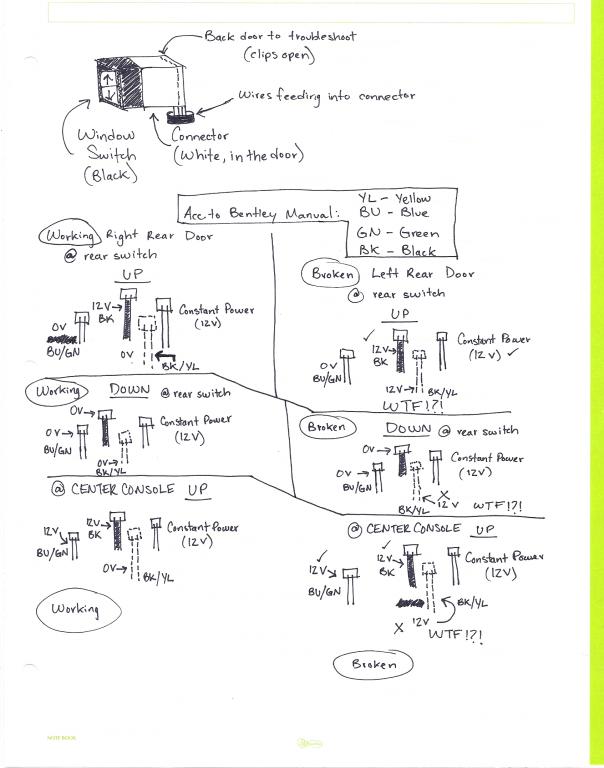 Back door to troubleshoot
(clips open)
Wires feeding into connector
Window
Switch
(Black)
Connector
(White, in the door)
Acc to Bentley Manual:
YL - Yellow
BU - Blue
GN - Green
BK - Black
Working Right Rear Door
@ rear switch
UP
12V
BK
Constant Power
(12V)
0V
BU/GN
0V
BK/YL
Broken Left Rear Door
@ rear switch
UP
12V
BK
Constant Power
(12V)
0V
BU/GN
12V
BK/YL
WTF!?!
Working DOWN @ rear switch
0V
0V
BU/GN
Constant Power
(12V)
0V
BK/YL
Broken DOWN @ rear switch
0V
0V
BU/GN
Constant Power
(12V)
BK/YL
X
12V
WTF!?!
@ CENTER CONSOLE UP
12V
BU/GN
12V
BK
Constant Power
(12V)
0V
BK/YL
Working
@ CENTER CONSOLE UP
12V
BU/GN
12V
BK
Constant Power
(12V)
BK/YL
X 12V
WTF!?!
Broken
NOTE BOOK